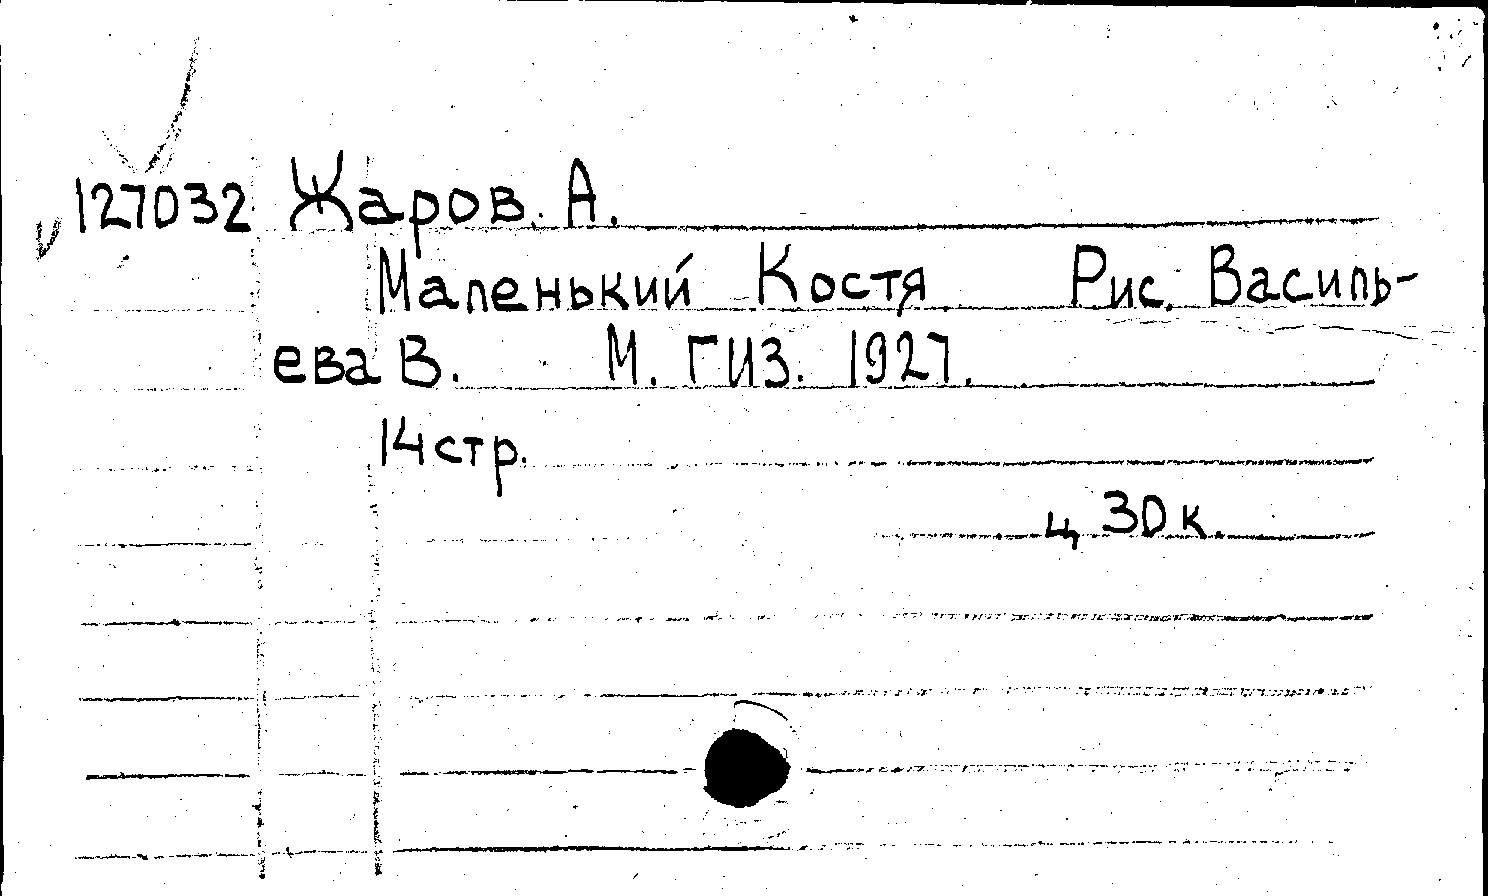 127032 Жаров. А.
Маленький Костя Рис. Василь-
ева В. М. ГИЗ. 1927.
14 стр.
ц 30 к.